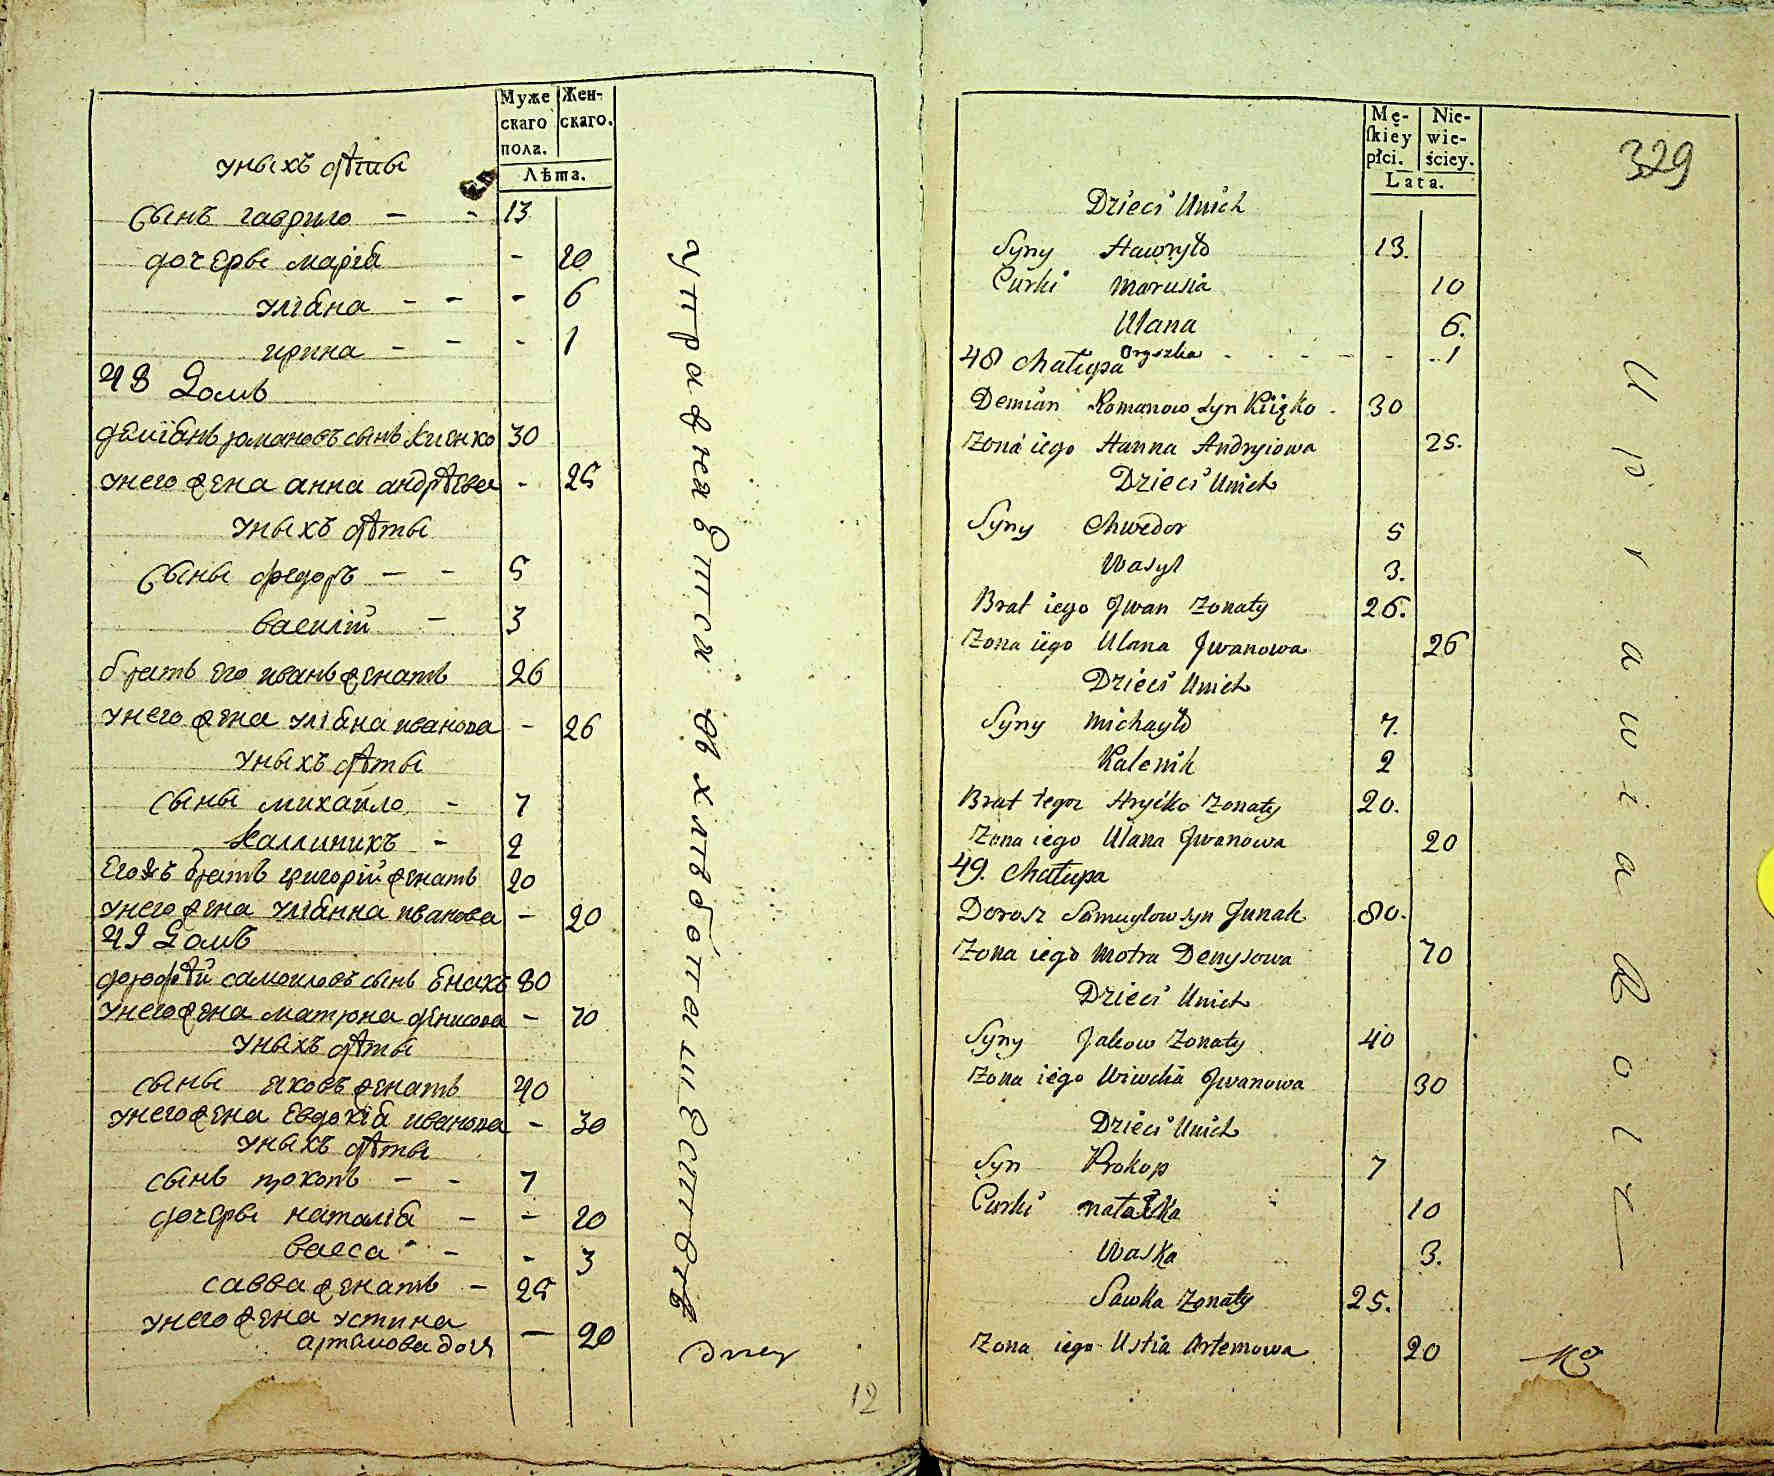 Муже
скаго
пола.
Жен-
скаго.
Лѣта.
уныхъ дѣти
сынъ гаврило - - 13
дочерьи марія - 10
уліана - - - 6
ирина - - - 1
48 Домъ
деміанъ романовъ сынъ 30
унего жена анна андрѣева - 25
уныхъ дѣты
сыны федоръ - - 5
василій - 3
братъ его иванъ женатъ 26
унего жена уліана иванова - 26
уныхъ дѣты
сыны михайло - 7
каллиникъ - 2
Егожъ братъ григорій женатъ 20
унего жена уліанна иванова - 20
49 Домъ
дорофѣй самоиловъ сынъ юнакъ 80
унего жена матрона денисова - 70
уныхъ дѣты
сыны яковъ женатъ 40
унего жена Евдокія иванова - 30
уныхъ дѣты
сынъ прокопъ - - 7
дочерьи наталія - - 10
васса - - 3
савва женатъ - 25
унего жена устина
артемова дочь - 20
управляется въ хлѣбопашествѣ
12
Mę-
skiey
płci.
Nie-
wie-
ściey.
Lata.
329
Dzieci Unich
Syny Hawryło 13.
Curki Marusia 10
Ulana 6.
Oryszka - - - - 1
48 Chałupa
Demian Romanow syn 30
Zona iego Hanna Andryiowa 25.
Dzieci Unich
Syny Chwedor 5
Wasyl 3.
Brat iego Jwan Zonaty 26.
Zona iego Ulana Jwanowa 26
Dzieci Unich
Syny Michayło 7.
Kalenik 2
Brat tegoz Hryćko Zonaty 20.
Zona iego Ulana Jwanowa 20
49. Chałupa
Dorosz Samuylow syn Junak 80.
Zona iego Motra Denysowa 70
Dzieci Unich
Syny Jakow Zonaty 40
Zona iego Wiwdia Jwanowa 30
Dzieci Unich
Syn Prokop 7
Curki Natałka 10
Waska 3.
Sawka Zonaty 25.
Zona iego Ustia Artemowa 20
Uprawia Rolę